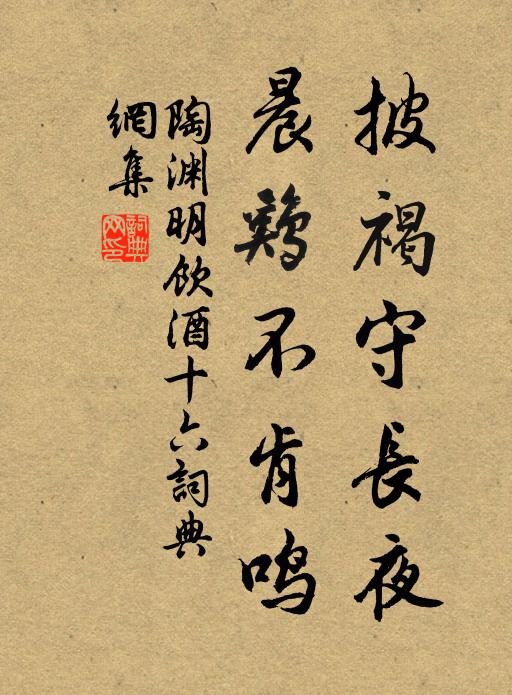 披褐守長夜
晨鷄不肯鳴
陶渊明飲酒十六詞典
網集
詞典
网印